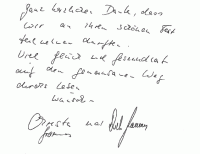 Ganz herzlichen Dank, dass
wir an Ihrem schönen Fest
teilnehmen durften.
Viel Glück und Gesundheit
auf dem gemeinsamen Weg
durchs Leben
wünschen
und